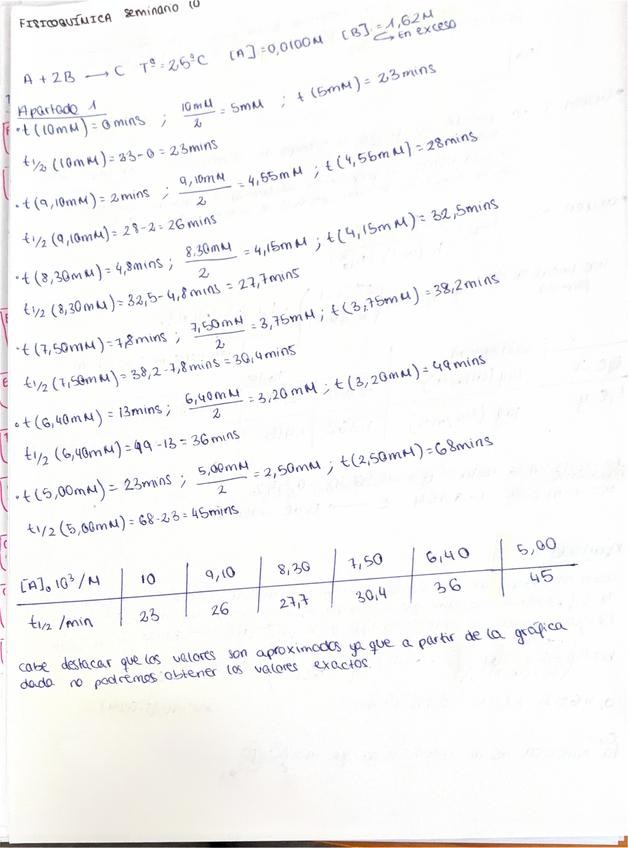 FISICOQUÍMICA Seminario 10
A + 2B → C Tª = 25°C [A] = 0,0100M [B] = 1,62M
→ En exceso
Apartado 1
• t (10mM) = 0 mins ; 10mM/2 = 5mM ; t (5mM) = 23 mins
t1/2 (10mM) = 23 - 0 = 23mins
• t (9,10mM) = 2mins ; 9,10mM/2 = 4,55mM ; t (4,55mM) = 28mins
t1/2 (9,10mM) = 28 - 2 = 26 mins
• t (8,30mM) = 4,8mins ; 8,30mM/2 = 4,15mM ; t (4,15mM) = 32,5mins
t1/2 (8,30mM) = 32,5 - 4,8mins = 27,7mins
• t (7,50mM) = 7,8mins ; 7,50mM/2 = 3,75mM ; t (3,75mM) = 38,2mins
t1/2 (7,50mM) = 38,2 - 7,8mins = 30,4mins
• t (6,40mM) = 13mins ; 6,40mM/2 = 3,20mM ; t (3,20mM) = 49mins
t1/2 (6,40mM) = 49 - 13 = 36mins
• t (5,00mM) = 23mins ; 5,00mM/2 = 2,50mM ; t (2,50mM) = 68mins
t1/2 (5,00mM) = 68 - 23 = 45mins
[A]₀ 10³/M | 10 | 9,10 | 8,30 | 7,50 | 6,40 | 5,00
t1/2 /min | 23 | 26 | 27,7 | 30,4 | 36 | 45
cabe destacar que los valores son aproximados ya que a partir de la gráfica
dada no podremos obtener los valores exactos.